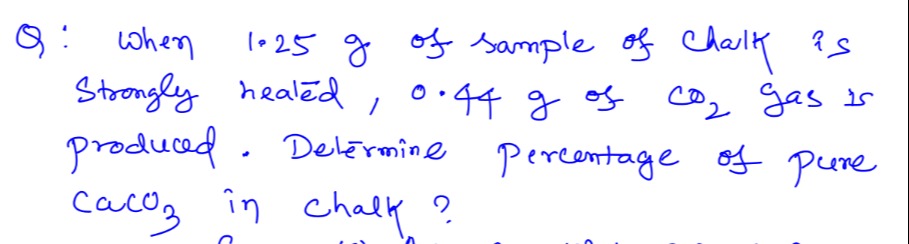 Q: When 1.25 g of sample of Chalk is
Strongly heated, 0.44 g of CO2 gas is
produced. Determine Percentage of pure
CaCO3 in chalk?